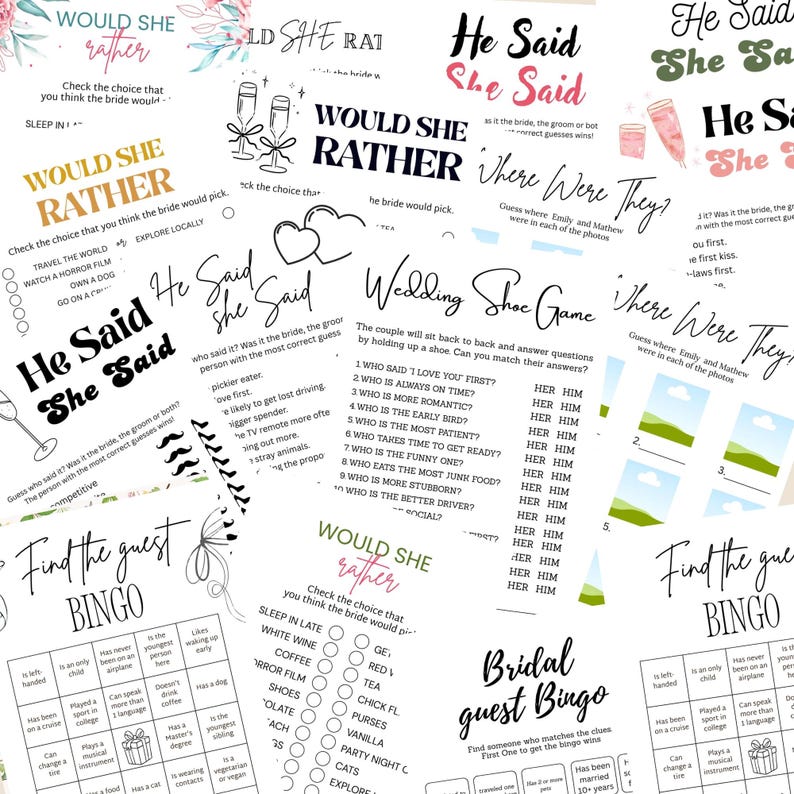 WOULD SHE
rather
Check the choice that
you think the bride would
SLEEP IN
SHE
He Said
She Said
He Said
She Said
WOULD SHE
RATHER
Check the choice that you think the bride would pick.
TRAVEL THE WORLD or EXPLORE LOCALLY
WATCH A HORROR FILM
OWN A DOG
GO ON A
WOULD SHE
RATHER
the choice that you think the bride would pick.
TEA
as it the bride, the groom or bot
most correct guesses wins!
Where Were They?
Guess where Emily and Mathew
were in each of the photos
He Sa
She S
said it? Was it the bride, the groom
person with the most correct gu
first.
e first kiss.
-laws first.
He Said
she Said
who said it? Was it the bride, the groom
person with the most correct guess
pickier eater.
love first.
likely to get lost driving.
bigger spender.
the TV remote more ofte
ping out more.
stray animals.
ing the propo
He Said
She Said
Guess who said it? Was it the bride, the groom or both?
The person with the most correct guesses wins!
competitive
Wedding Shoe Game
The couple will sit back to back and answer questions
by holding up a shoe. Can you match their answers?
1. WHO SAID "I LOVE YOU" FIRST? HER HIM
2. WHO IS ALWAYS ON TIME? HER HIM
3. WHO IS MORE ROMANTIC? HER HIM
4. WHO IS THE EARLY BIRD? HER HIM
5. WHO IS THE MOST PATIENT? HER HIM
6. WHO TAKES TIME TO GET READY? HER HIM
7. WHO IS THE FUNNY ONE? HER HIM
8. WHO EATS THE MOST JUNK FOOD? HER HIM
9. WHO IS MORE STUBBORN? HER HIM
10. WHO IS THE BETTER DRIVER? HER HIM
SOCIAL? HER HIM
FIRST? HER HIM
HER HIM
HER HIM
HER HIM
HER HIM
Where Were They?
Guess where Emily and Mathew
were in each of the photos
2.
3.
5.
Find the guest
BINGO
Is left-handed
Is an only child
Has never been on an airplane
Is the youngest person here
Likes waking up early
Has been on a cruise
Played a sport in college
Can speak more than 1 language
Doesn't drink coffee
Has a dog
Can change a tire
Plays a musical instrument
Has a Master's degree
Is the youngest sibling
Has a food
Has a cat
Is wearing contacts
Is a vegetarian or vegan
WOULD SHE
rather
Check the choice that
you think the bride would
SLEEP IN LATE
WHITE WINE
COFFEE
TEA
SHOES
CHICK FL
PURSES
VANILLA
PARTY NIGHT
CATS
EXPLORE
Bridal
guest Bingo
Find someone who matches the clues.
First One to get the bingo wins
traveled one
Has 2 or more pets
Has been married 10+ years
Find the gue
BINGO
Is left-handed
Is an only child
Has never been on an airplane
Has been on a cruise
Played a sport in college
Can speak more than 1 language
Can change a tire
Plays a musical instrument